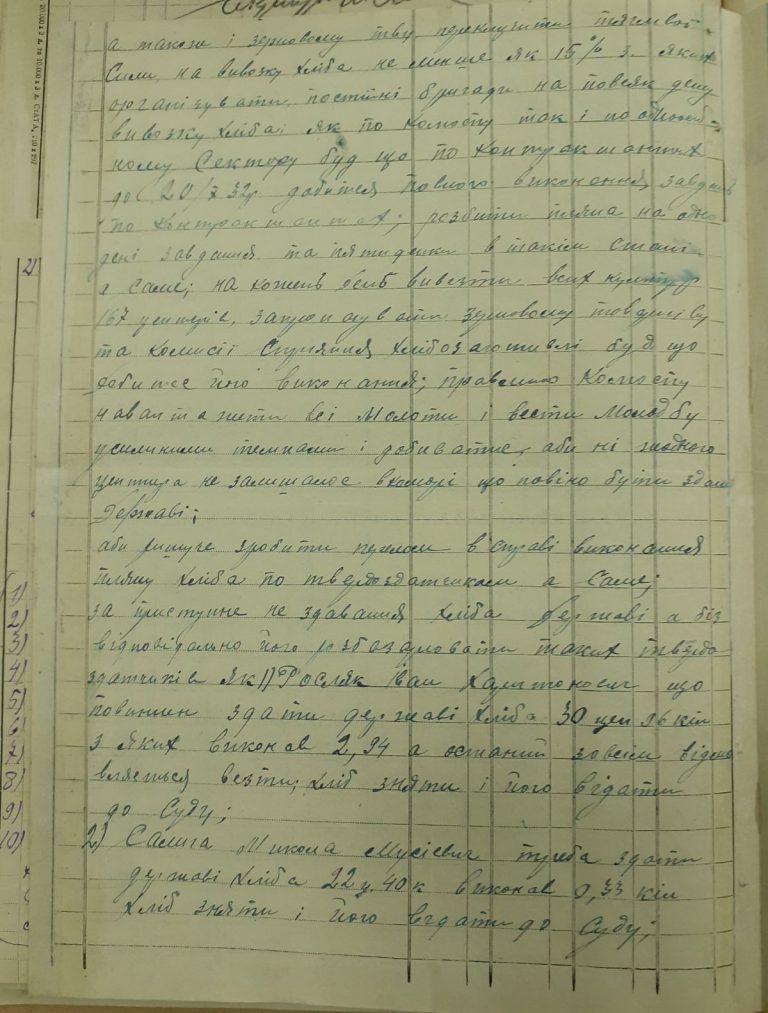 а також і зерновому тву переключити тяглової
сили на вивозку хліба не менше як 15% з яких
організувати постійні бригади на
вивозку хліба як по колоспу так і по
ному сектору буд що по контрактантах
до 20/X 32р. добитися повного виконання завдань
по контрактантах; розбити пляна на одно
дені завдання та пятиденки в такім стані
а саме; на кожень день вивезти всих культур
167 центерів, запропонувати зерновому товариству
та комисії сприяння хлібозаготивлі будь що
добитсе його виконання; правлінню колоспу
навантажити всі молоти і вести молодбу
усиленими темпами і добиватись аби ні жодного
центнера не залишалос в коморі що повіно бути здано
Державі;
аби рішуче зробити перелом в справі виконання
пляну хліба по твердоздатчикам а саме;
за приступне не здавання хліба Державі а біз
відповідально його розбазарювати таких твердо
здатчиків як 1) Росляк Іван Харитонович що
повинин здати державі хліба 30 цен 96 кіл
з яких виконав 2,94 а останий зовсім відмо
вляється везти; хліб зняти і його відати
до Суду;
2) Салига Микола Мусієвич треба здати
державі хліба 22 ц. 40 к виконав 0,33 кіл
хліб зняти і його відати до Суду;
2)
1)
2)
3)
4)
5)
6)
7)
8)
9)
10)